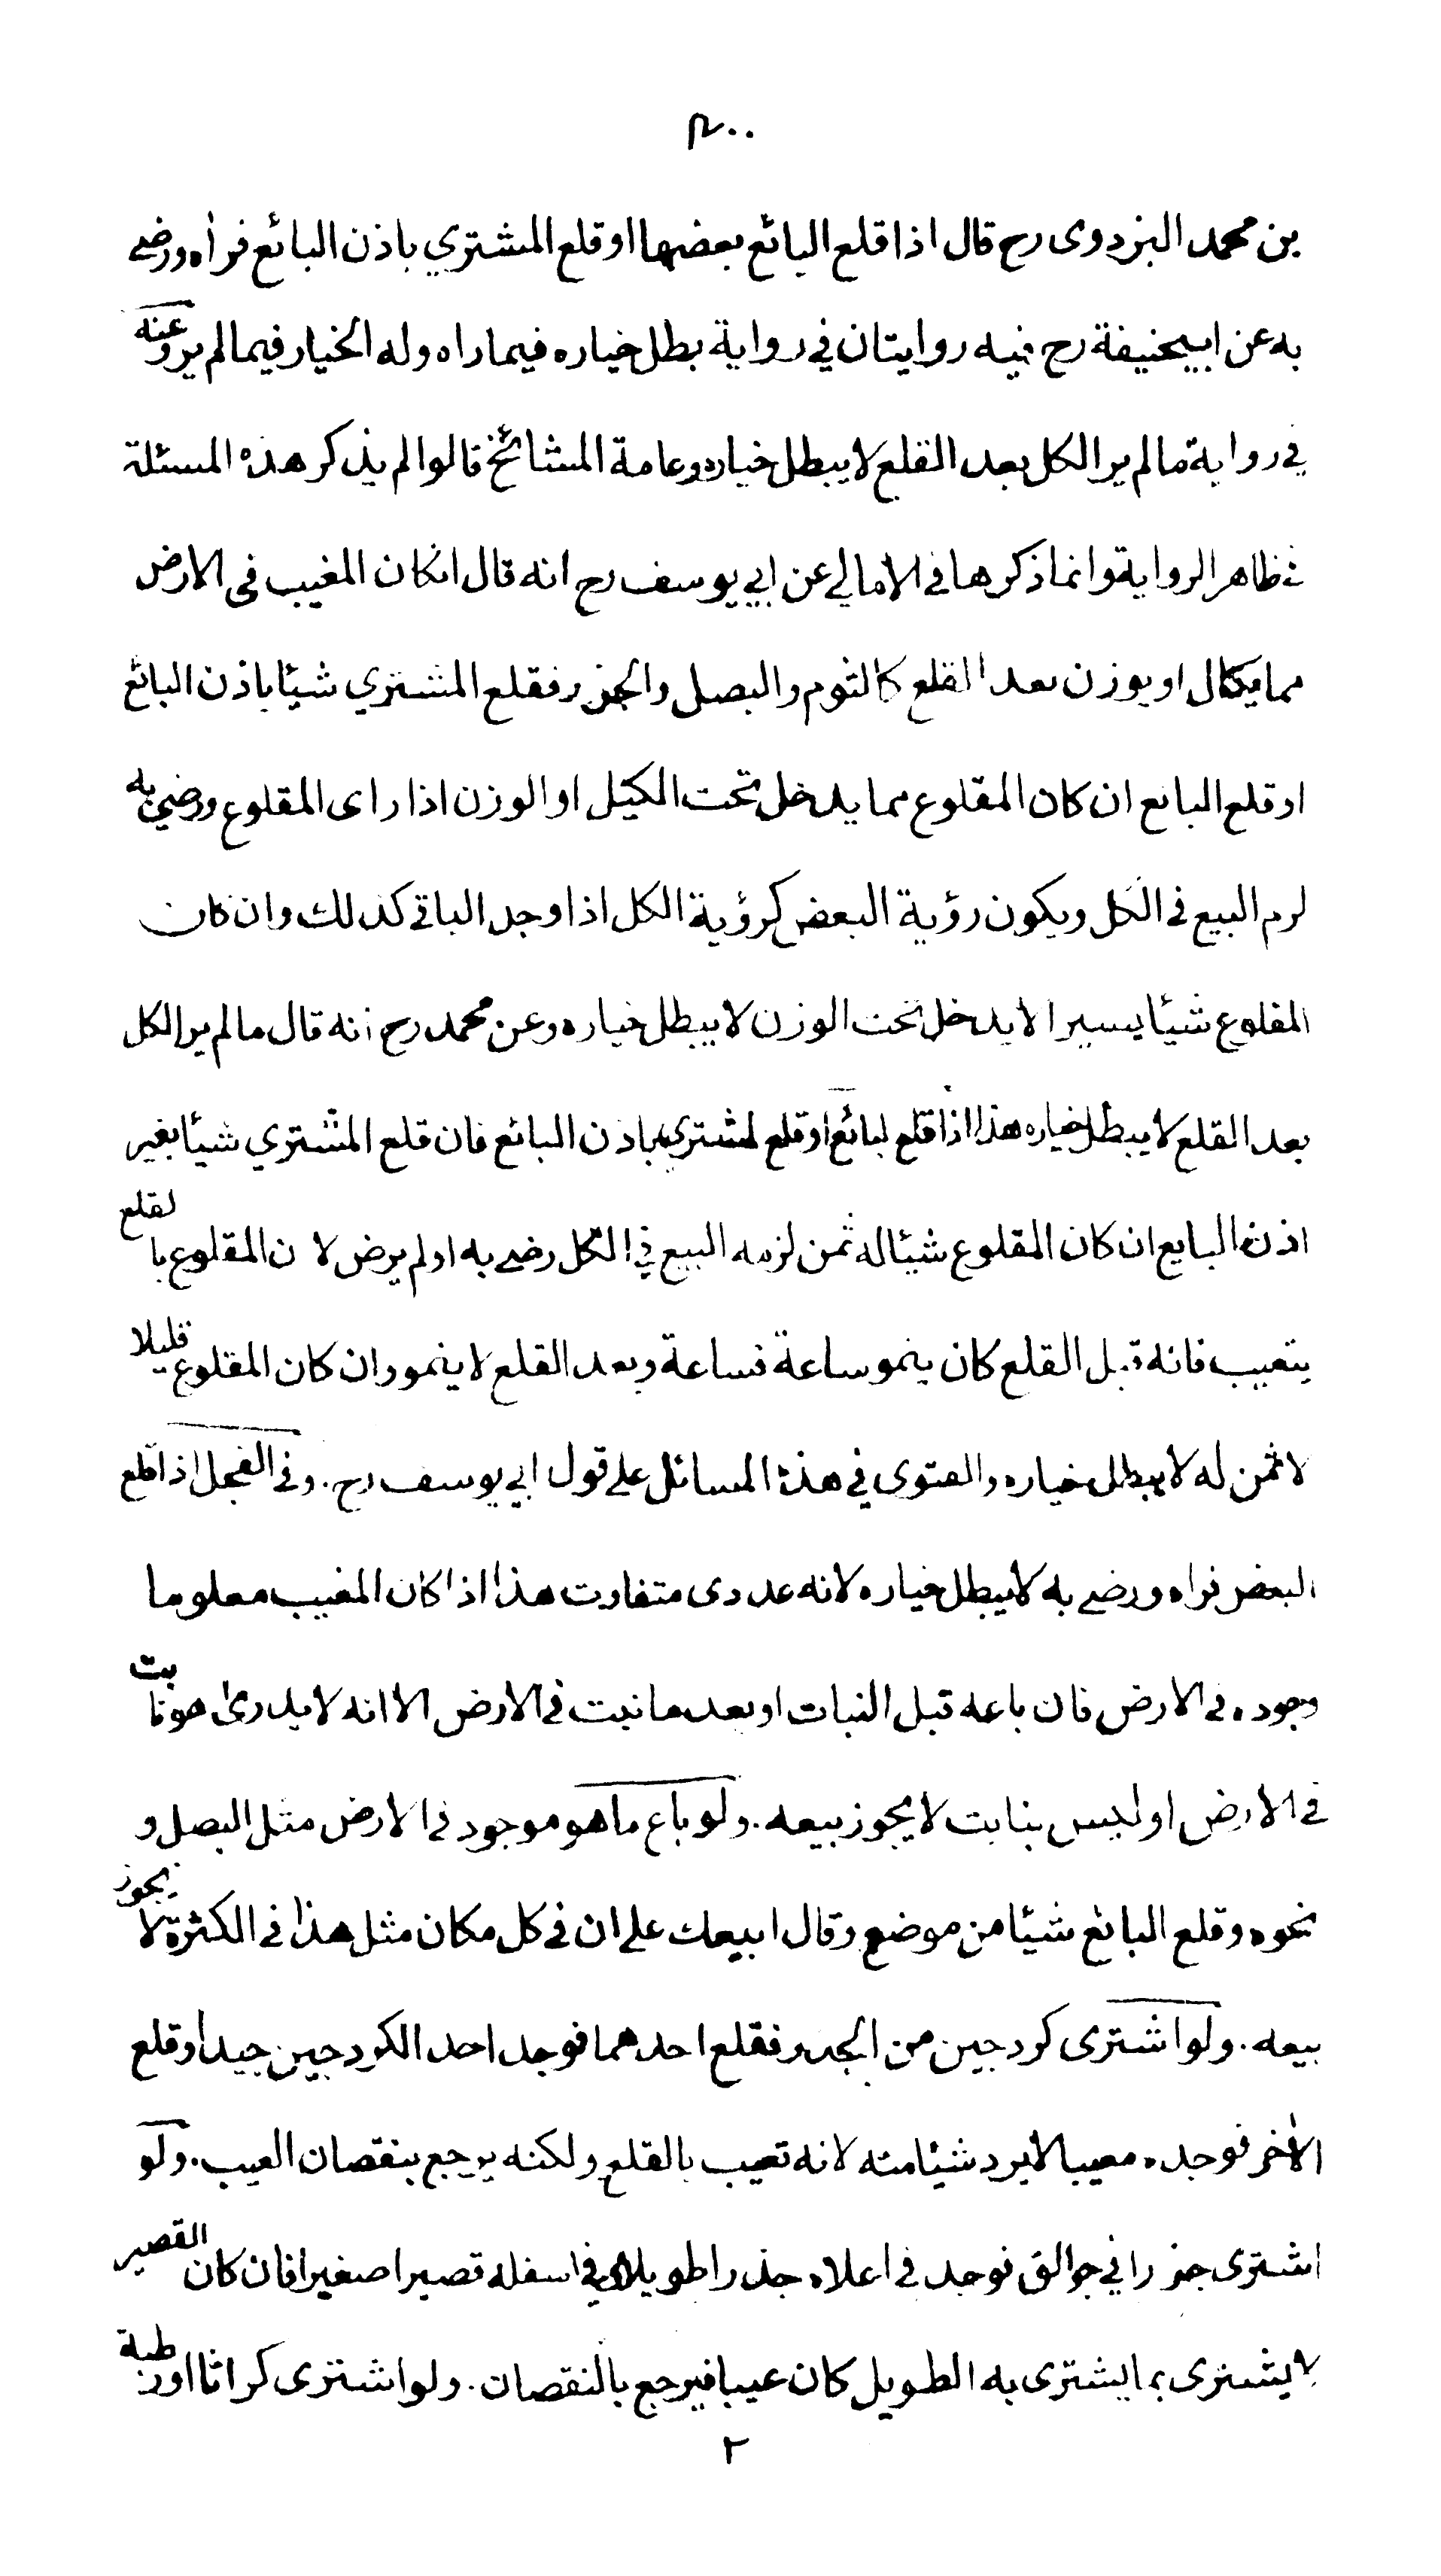 ٣٠٠
بن محمد البزدوى رح قال اذا قلع البائع بعضها او قلع المشتري باذن البائع فراٰه ورضي
به عن ابيحنيفة رح فيه روايتان في رواية بطل خياره فيما راه وله الخيار فيما لم ير وعنه
في رواية ما لم ير الكل بعد القلع لا يبطل خياره وعامة المشائخ قالوا لم يذكر هذه المسئلة
في ظاهر الرواية وانما ذكرها في الامالي عن ابي يوسف رح انه قال انكان المغيب في الارض
مما يكال او يوزن بعد القلع كالثوم والبصل والجزر فقلع المشتري شيئا باذن البائع
او قلع البائع ان كان المقلوع مما يدخل تحت الكيل او الوزن اذا راى المقلوع ورضي به
لزم البيع في الكل ويكون رؤية البعض كرؤية الكل اذا وجد الباقي كذلك وان كان
المقلوع شيئا يسيرا لا يدخل تحت الوزن لا يبطل خياره وعن محمد رح انه قال ما لم ير الكل
بعد القلع لا يبطل خياره هذا اذا قلع البائع او قلع المشتري باذن البائع فان قلع المشتري شيئا بغير
اذن البايع ان كان المقلوع شيئا له ثمن لزمه البيع في الكل رضي به او لم يرض لا ن المقلوع بالقلع
يتعيب فانه قبل القلع كان ينمو ساعة فساعة وبعد القلع لا ينمو وان كان المقلوع قليلا
لا ثمن له لا يبطل خياره والفتوى في هذه المسائل على قول ابي يوسف رح. وفي الفجل اذا قلع
البعض فراه ورضي به لا يبطل خياره لانه عددى متفاوت هذا اذا كان المغيب معلوما
وجوده في الارض فان باعه قبل النبات او بعد ما نبت في الارض الا انه لا يدرى هو نابت
في الارض او ليس بنابت لا يجوز بيعه. ولو باع ما هو موجود في الارض مثل البصل و
نحوه وقلع البائع شيئا من موضع وقال ابيعك على ان في كل مكان مثل هذا في الكثرة لا يجوز
بيعه. ولو اشترى كردجين من الجزر فقلع احدهما فوجد احد الكردجين جيدا وقلع
الاٰخر فوجده معيبا لا يرد شيئا منه لانه تعيب بالقلع ولكنه يرجع بنقصان العيب. ولو
اشترى جزرا في جوالق فوجد في اعلاه جذرا طويلا وفي اسفله قصيرا صغيرا فان كان القصير
لا يشترى بما يشترى به الطويل كان عيبا فيرجع بالنقصان. ولو اشترى كراثا او رطبة
٢